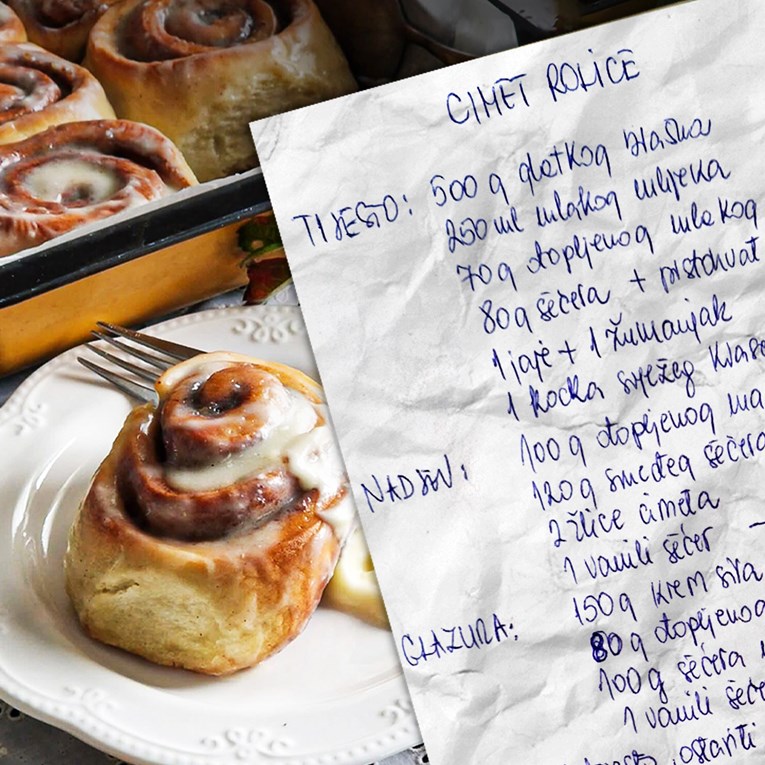 CIMET ROLICE
TIJESTO: 500 g glatkog brašna
250 ml mlakog mlijeka
70 g otopljenog mlakog
80 g šećera + prstohvat
1 jaje + 1 žumanjak
1 kocka svježeg kvasc
100 g otopljenog ma
NADJEV: 120 g smeđeg šećera
2 žlice cimeta
1 vanili šećer –
150 g krem sira
GLAZURA: 80 g otopljenog
100 g šećera
1 vanili šeće
ostaviti